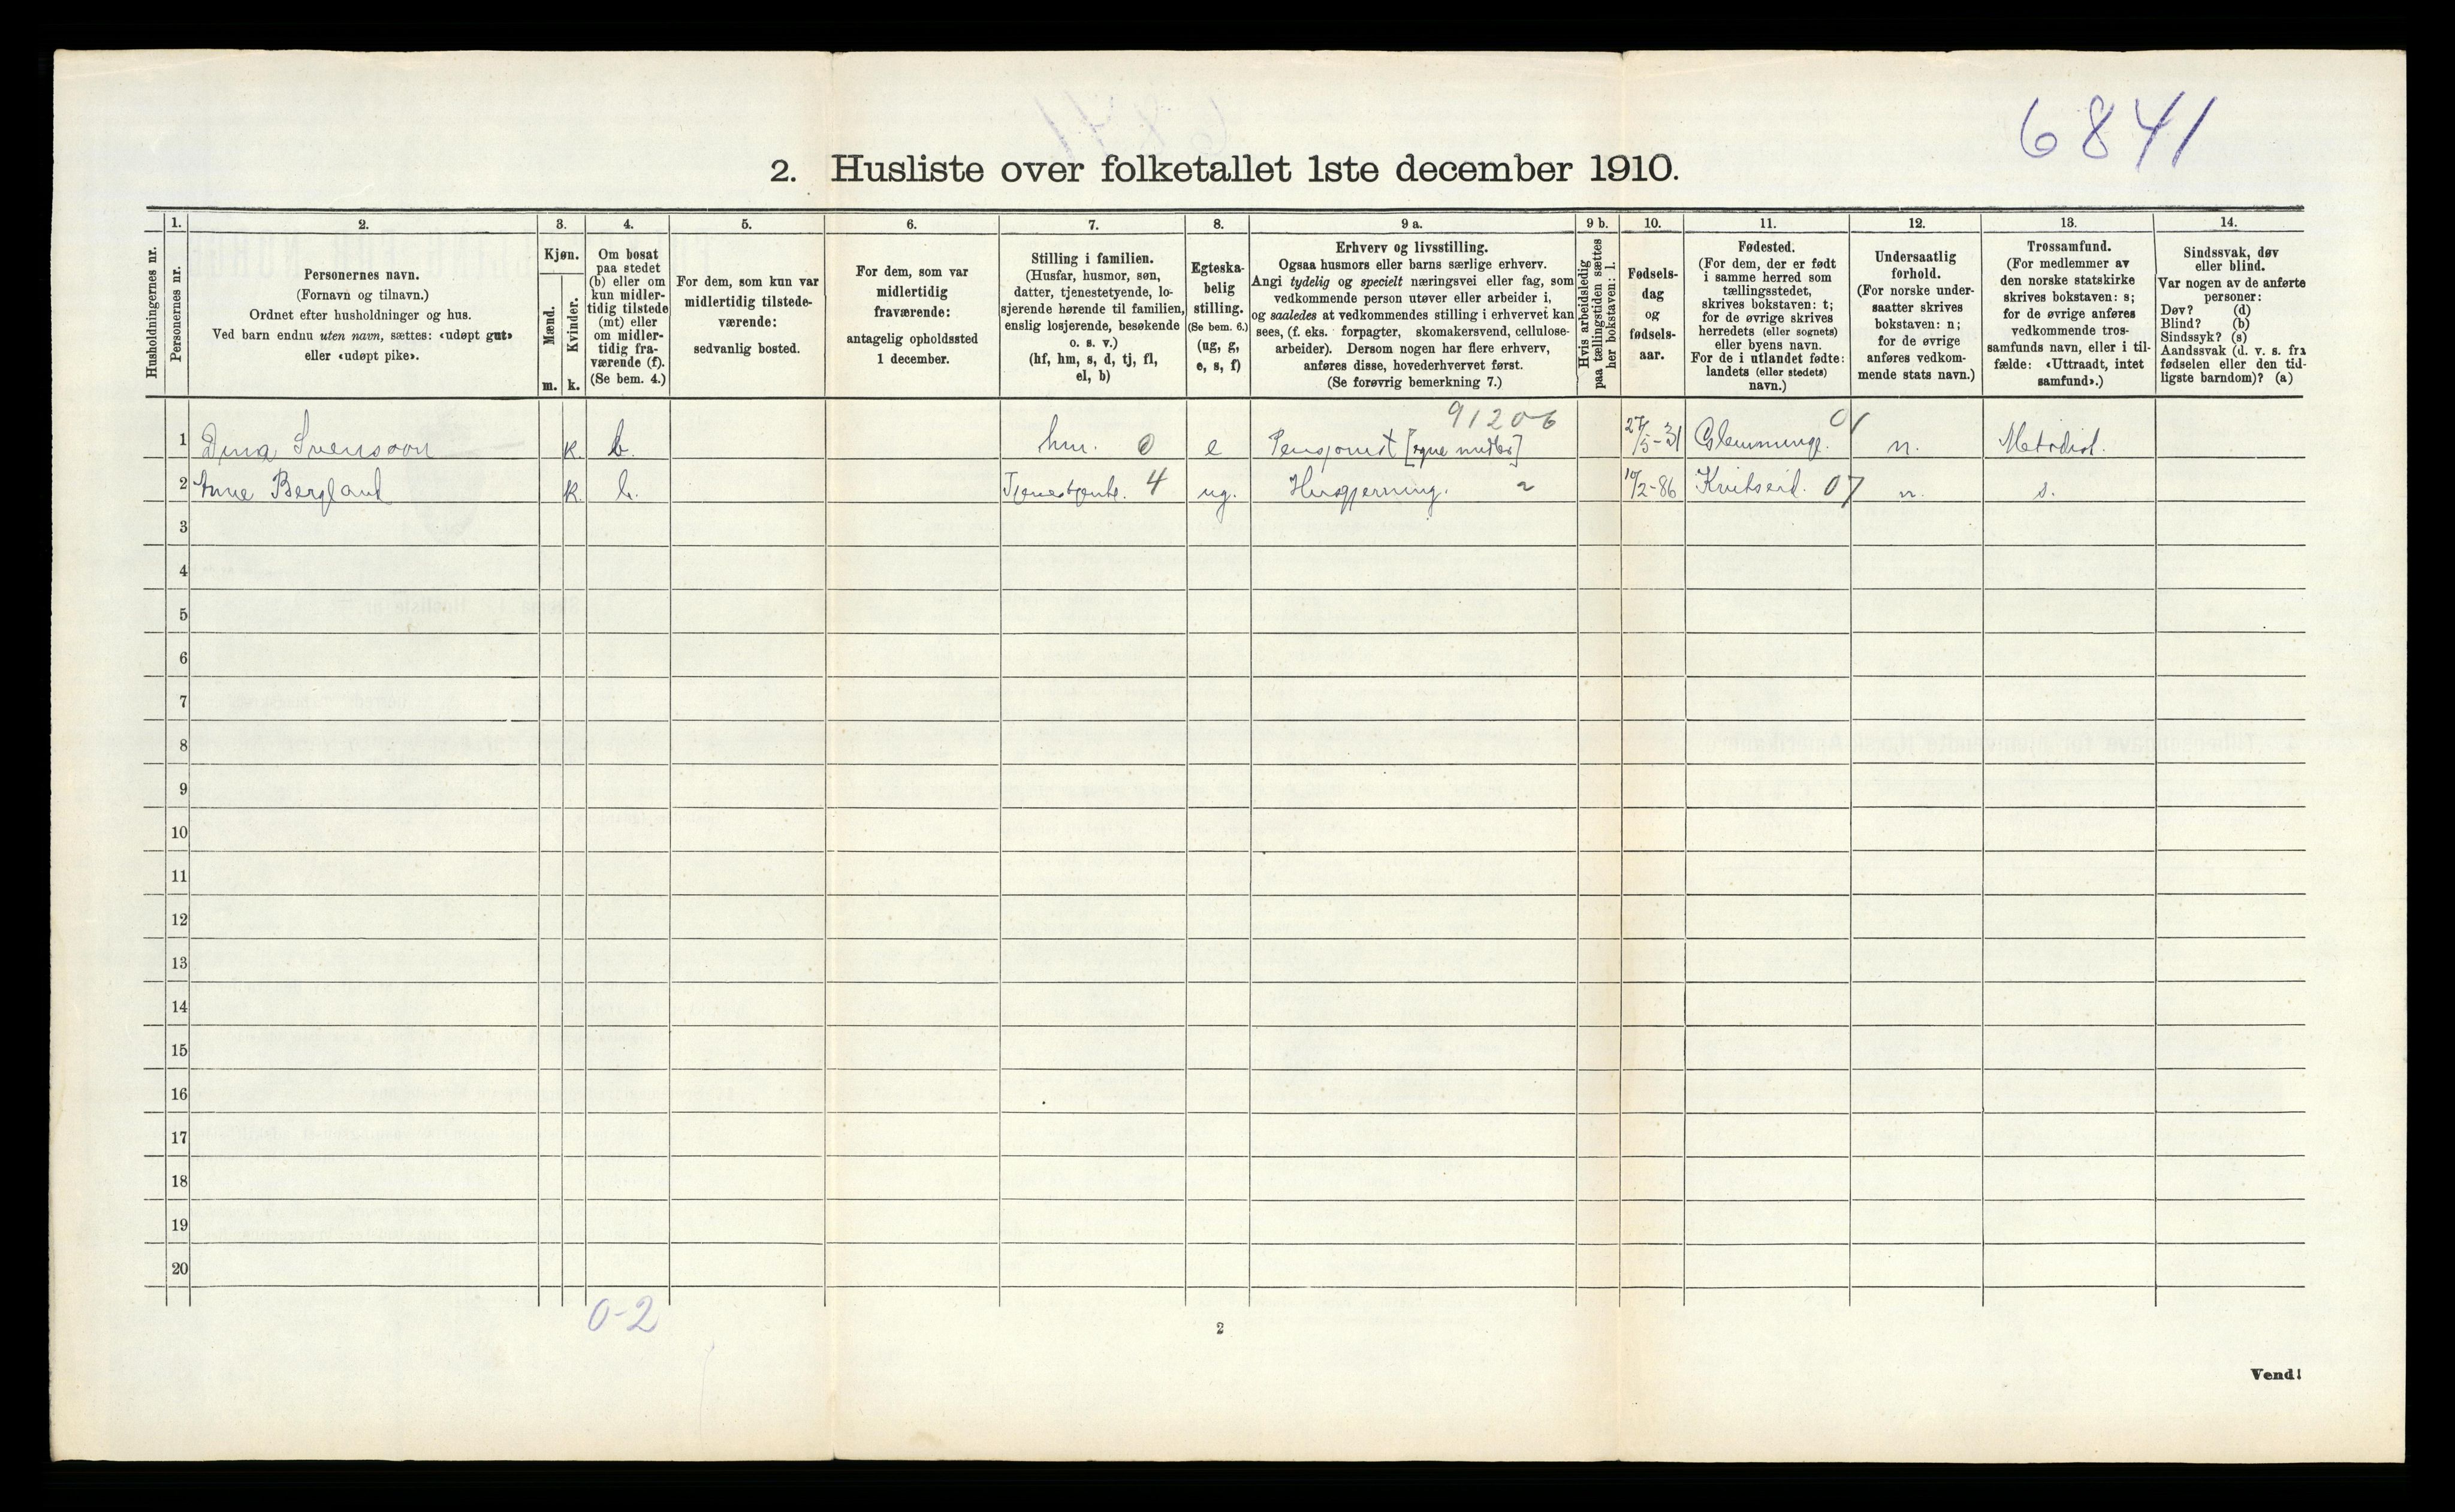 6841
2. Husliste over folketallet 1ste december 1910.
Husholdningernes nr.
1.
Personernes nr.
2.
Personernes navn.
(Fornavn og tilnavn.)
Ordnet efter husholdninger og hus.
Ved barn endnu uten navn, sættes: «udøpt gut»
eller «udøpt pike».
3.
Kjøn.
Mænd.
Kvinder.
m. k.
4.
Om bosat
paa stedet
(b) eller om
kun midler-
tidig tilstede
(mt) eller
om midler-
tidig fra-
værende (f).
(Se bem. 4.)
5.
For dem, som kun var
midlertidig tilstede-
værende:
sedvanlig bosted.
6.
For dem, som var
midlertidig
fraværende:
antagelig opholdssted
1 december.
7.
Stilling i familien.
(Husfar, husmor, søn,
datter, tjenestetyende, lo-
sjerende hørende til familien,
enslig losjerende, besøkende
o. s. v.)
(hf, hm, s, d, tj, fl,
el, b)
8.
Egteska-
belig
stilling.
(Se bem. 6.)
(ug, g,
e, s, f)
9 a.
Erhverv og livsstilling.
Ogsaa husmors eller barns særlige erhverv.
Angi tydelig og specielt næringsvei eller fag, som
vedkommende person utøver eller arbeider i,
og saaledes at vedkommendes stilling i erhvervet kan
sees, (f. eks. forpagter, skomakersvend, cellulose-
arbeider). Dersom nogen har flere erhverv,
anføres disse, hovederhvervet først.
(Se forøvrig bemerkning 7.)
9 b.
Hvis arbeidsledig
paa tællingstiden sættes
her bokstaven: l.
10.
Fødsels-
dag
og
fødsels-
aar.
11.
Fødested.
(For dem, der er født
i samme herred som
tællingsstedet,
skrives bokstaven: t;
for de øvrige skrives
herredets (eller sognets)
eller byens navn.
For de i utlandet fødte:
landets (eller stedets)
navn.)
12.
Undersaatlig
forhold.
(For norske under-
saatter skrives
bokstaven: n;
for de øvrige
anføres vedkom-
mende stats navn.)
13.
Trossamfund.
(For medlemmer av
den norske statskirke
skrives bokstaven: s;
for de øvrige anføres
vedkommende tros-
samfunds navn, eller i til-
fælde: «Uttraadt, intet
samfund».)
14.
Sindssvak, døv
eller blind.
Var nogen av de anførte
personer:
Døv? (d)
Blind? (b)
Sindssyk? (s)
Aandssvak (d. v. s. fra
fødselen eller den tid-
ligste barndom)? (a)
91206 01
1 Dina Svensson k. b. hm. 0 e Pensjonist [egne midler] 27/5-31 Glemminge. n. Metodist.
2 Anne Bergland k. b. Tjenestjente. 4 ug. Husgjerning. 10/2-86 Kvitseid. 07 n. s.
3
4
5
6
7
8
9
10
11
12
13
14
15
16
17
18
19
20
0-2
2
Vend!